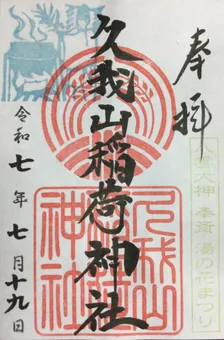 奉拝
久我山稲荷神社
令和七年七月十九日
久我山
稲荷
神社
湯の花まつり